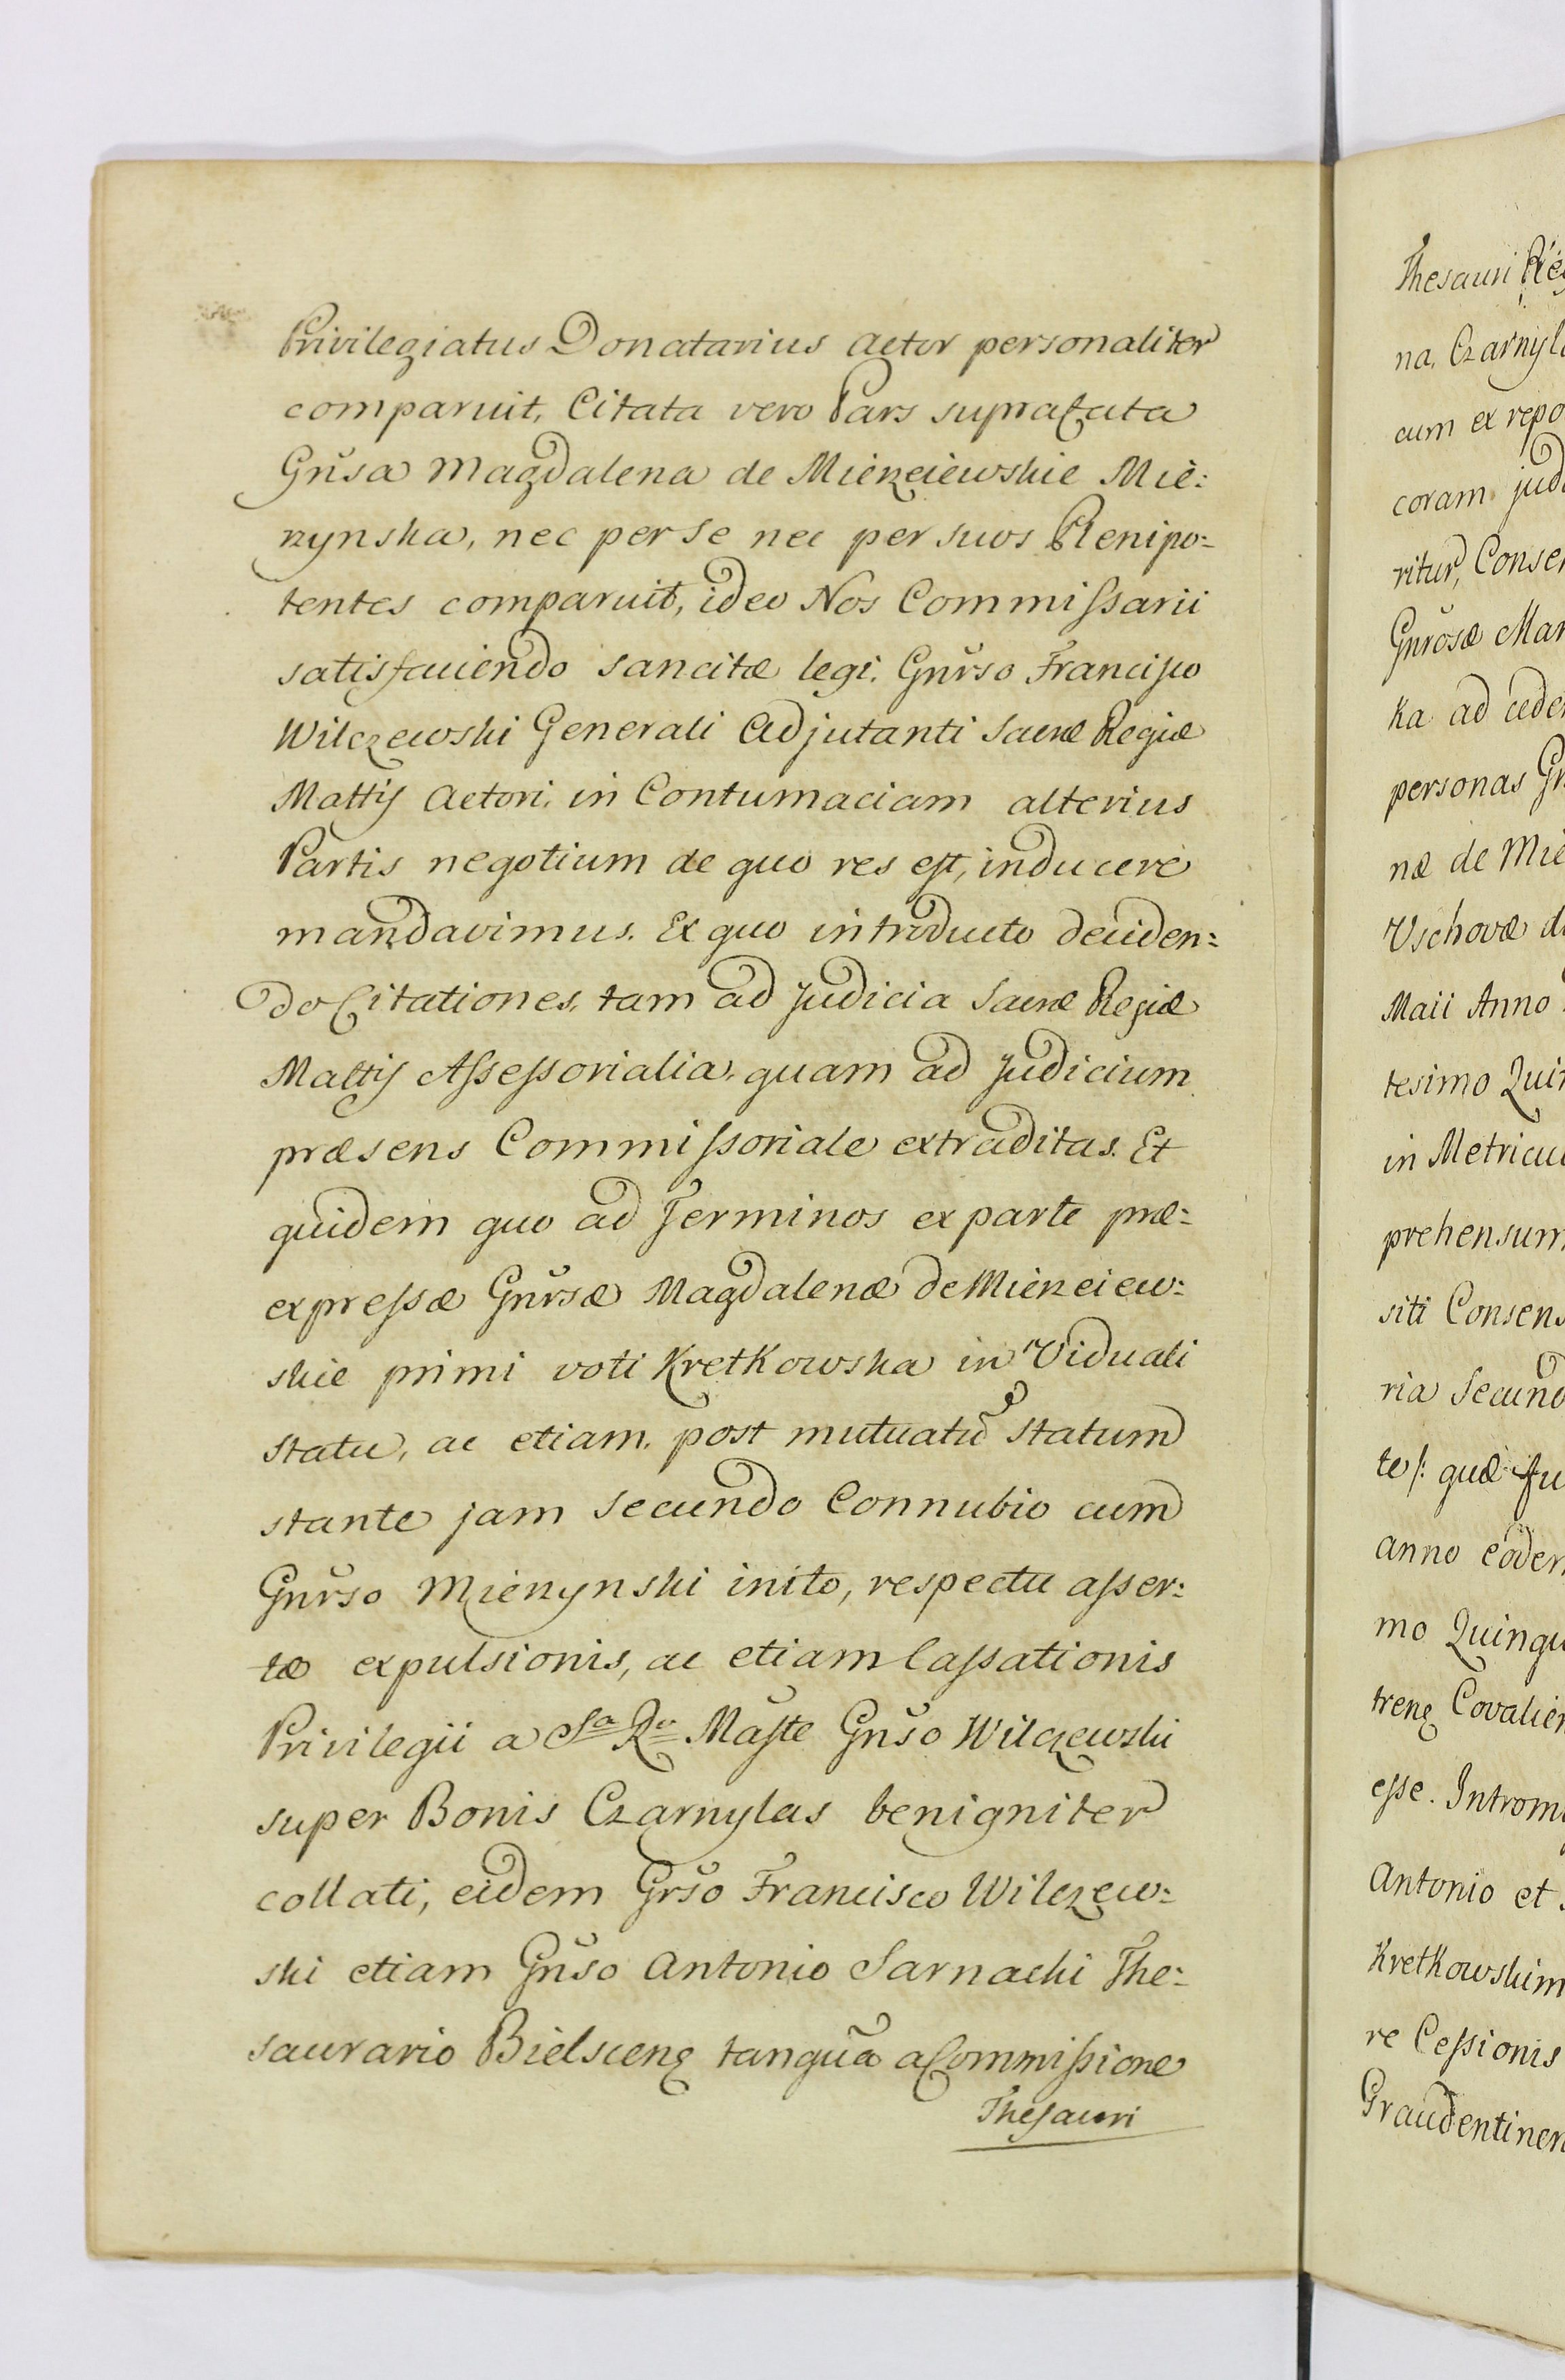 Privilegiatus Donatarius Actor personaliter
comparuit, Citata vero Pars supra Cata
Gnsa Magdalena de Mierzeiewskie Mie:
rzynska, nec per se nec per suos Plenipo:
tentes comparuit, ideo Nos Commissarii
satisfaciendo sancitæ legi. Gnrso Francisco
Wilczewski Generali Adjutanti Sacræ Regiæ
Mattis Actori, in Contumaciam alterius
Partis negotium de quo res est, inducere
mandavimus. Ex quo introducto deciden:
do Citationes, tam ad Judicia Sacræ Regiæ
Mattis Assessorialia, quam ad Judicium
præsens Commissoriale extraditas. Et
quidem quo ad Terminos ex parte præ:
expressæ Gnrsæ Magdalenæ de Mierzeiew:
skie primi voti Kretkowska in Viduali
statu, ac etiam, post mutuatũ statum
stante jam secundo Connubio cum
Gnrso Mierzynski inito, respectu asser:
tæ expulsionis, ac etiam Cassationis
Privilegii a Sa Ra Maste Gnso Wilczewski
super Bonis Czarnylas benigniter
collati, eidem Grso Francisco Wilczew:
ski etiam Gnso Antonio Sarnacki The:
saurario Bielscenę tanquã a Commissione
Thesauri
Thesauri
na, Czarnyl
cum ex repo
coram jud
ritur, Conse
Gnrosæ Mar
ka ad cede
personas G
næ de Mie
Vschovæ d
Maii Anno
tesimo Qui
in Metricu
prehensum
siti Consens
ria Secund
te/: quæ fu
anno eodem
mo Quinqu
trenę Covalien
esse. Introm
Antonio et
Kretkowskim
re Cessionis
Graudentinen